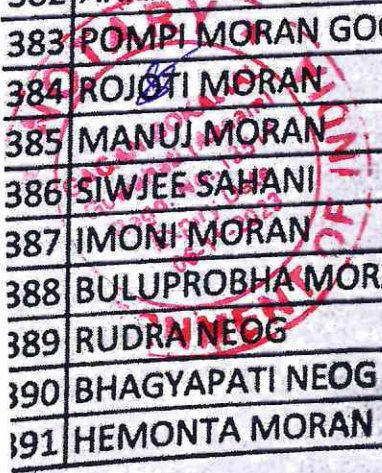 383 POMPI MORAN
384 ROJOTI MORAN
385 MANUJ MORAN
386 SIWJEE SAHANI
387 IMONI MORAN
388 BULUPROBHA
389 RUDRA NEOG
390 BHAGYAPATI NEOG
391 HEMONTA MORAN